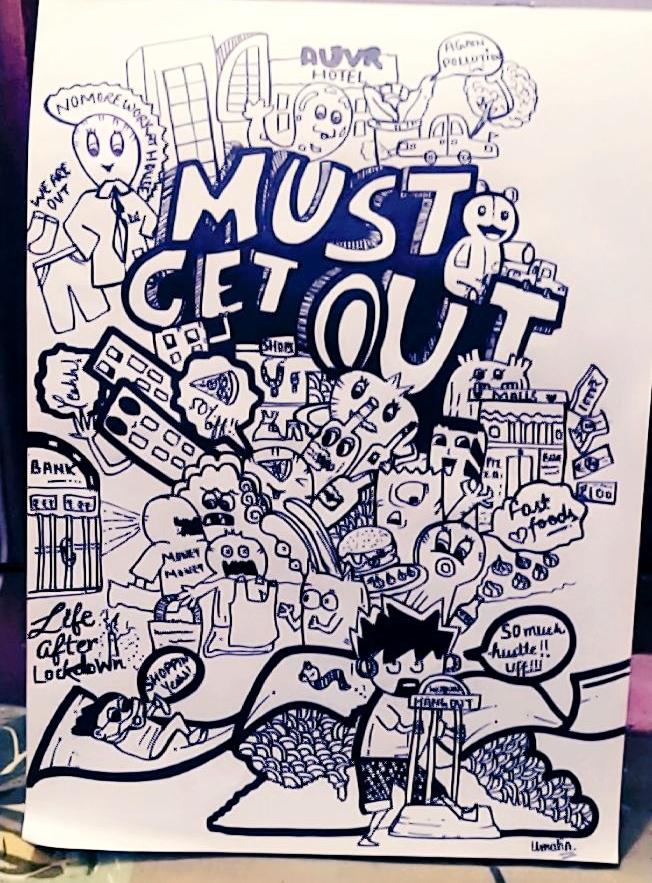 AUVR
HOTEL
AGAIN
POLLUTION
NOMOREWORKATHOME
WE ARE
OUT
MUST
GET OUT
SHOPS
MALLS
Yeahh!
50% off!
BANK
₹100
Fast
foods
MONEY
MONEY
Life
After
Lockdown
SHOPPIN
Yeah!
SO much
hustle!!
uff!!!
HANGOUT
Umahn.